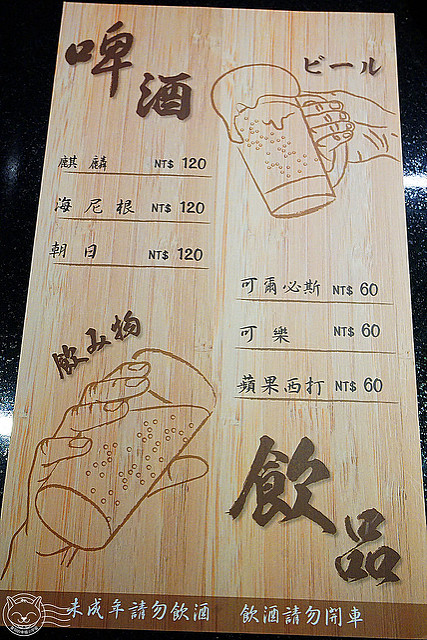 啤酒
ビール
麒麟 NT$ 120
海尼根 NT$ 120
朝日 NT$ 120
可爾必斯 NT$ 60
可樂 NT$ 60
蘋果西打 NT$ 60
飲み物
飲品
未成年請勿飲酒 飲酒請勿開車